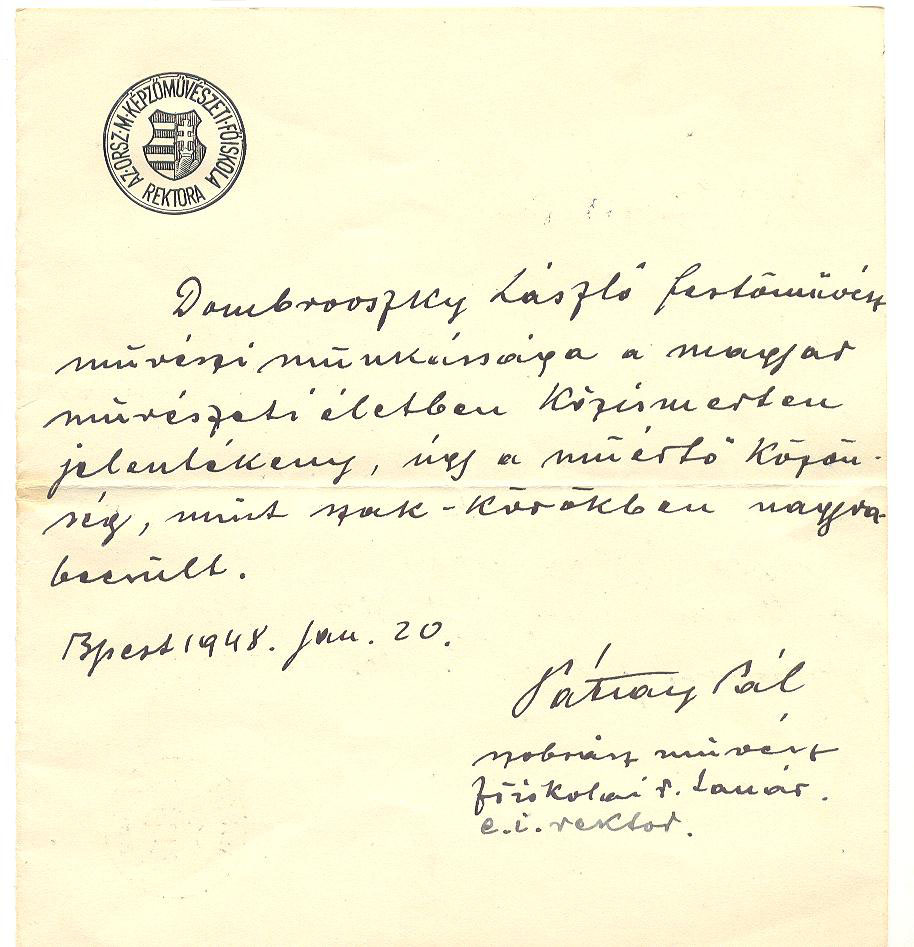 AZ·ORSZ·M·KÉPZŐMŰVÉSZETI·FŐISKOLA
REKTORA
Dombrovszky László festőművész
művészi munkássága a magyar
művészeti életben közismerten
jelentékeny, úgy a műértő közön-
ség, mint szak-körökben nagyra-
becsült.
Bpest 1948. jan. 20.
Pátzay Pál
szobrász művész
főiskolai r. tanár.
e.i. rektor.